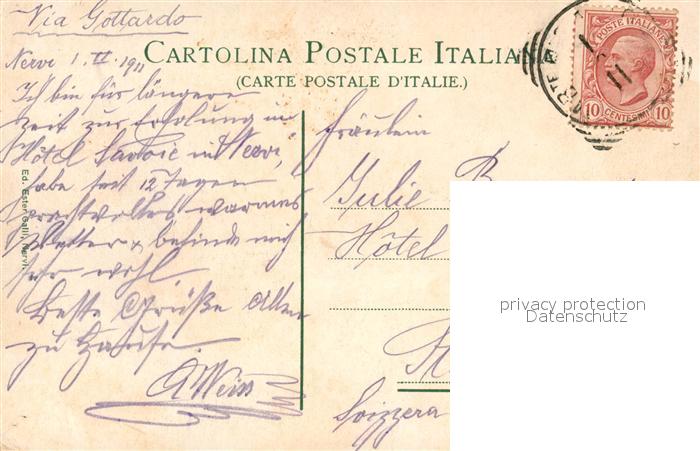 Via Gottardo
Nervi 1. II. 1911
CARTOLINA POSTALE ITALIAN
(CARTE POSTALE D'ITALIE.)
POSTE ITALIANE
10 CENTESIMI 10
Ich bin für längere
Zeit zur Erholung im
Hôtel Savoie in Nervi,
habe seit 12 Tagen
prachtvolles warmes
Wetter & befinde mich
sehr wohl.
Beste Grüße Allen
zu Hause.
A Weiss
Ed. Ester Galli, Nervi.
Fräulein
Julie B
Hôtel
Svizzera
privacy protection
Datenschutz